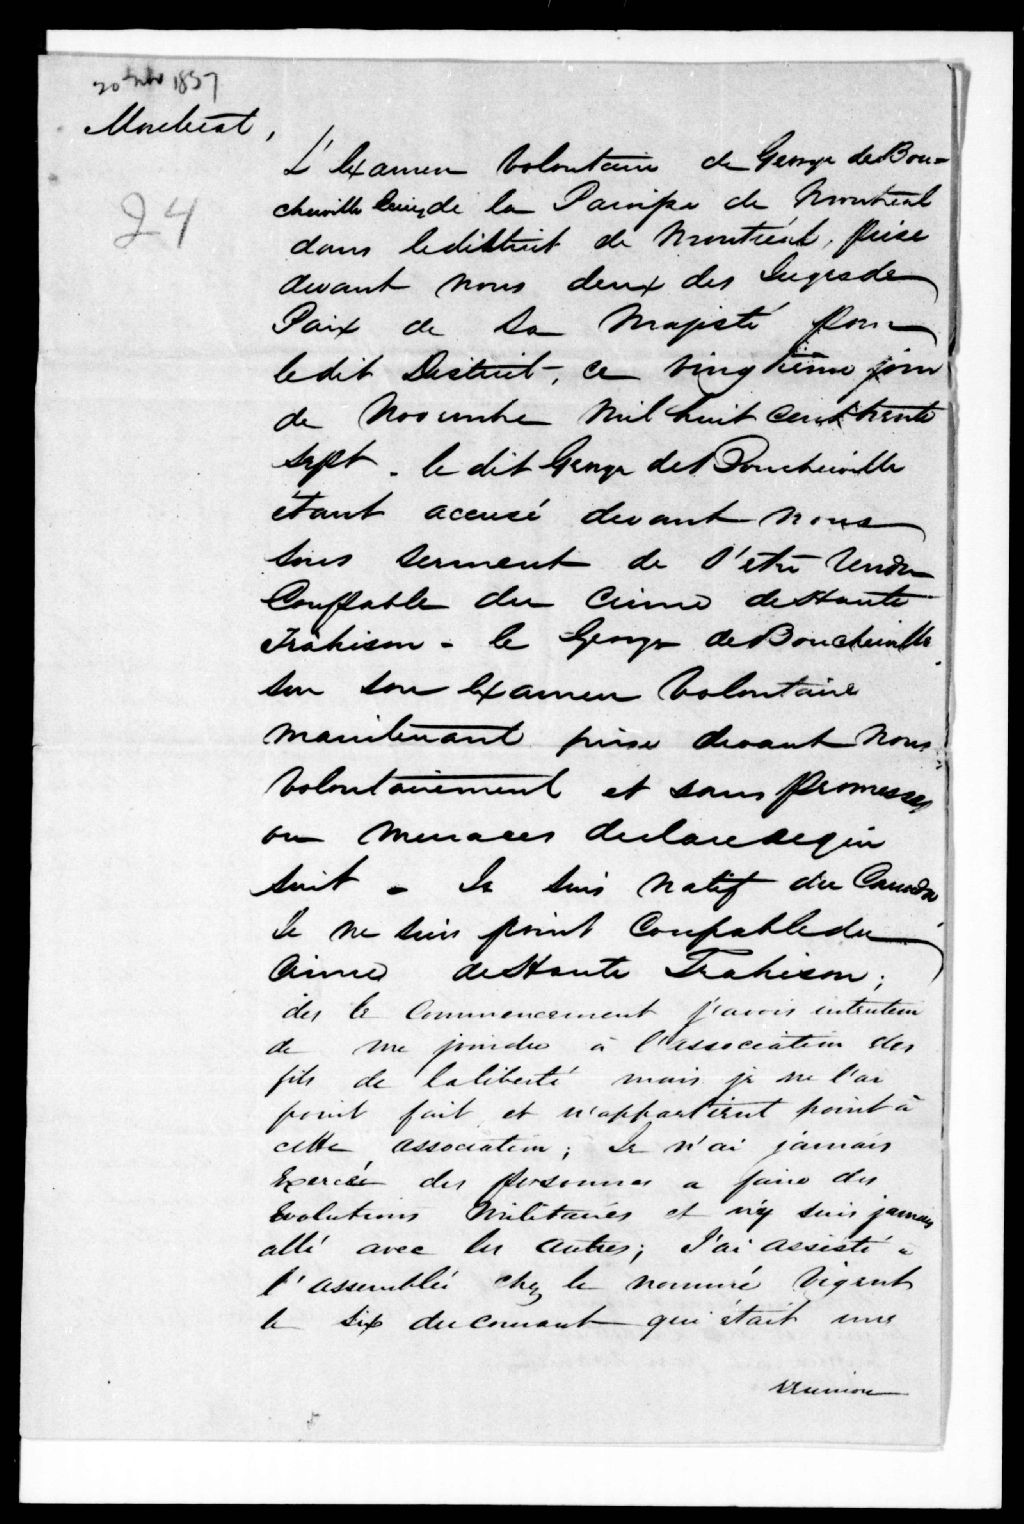 20 Nov 1837
Montreal,
24
L'Examen Volontaire de George de Bou-
cherville de la Paroisse de Montreal
dans le district de Montréal, prise
devant nous deux des Juges de
Paix de Sa Majesté pour
ledit District, ce vingtième jour
de Novembre mil huit cent trente
sept - le dit George de Boucherville
étant accusé devant nous
sous serment de s'etre rendu
Coupable du Crime de Haute
Trahison - le George de Boucherville
sur son Examen Volontaire
maintenant prise devant nous
Volontairement et sans promesses
ou menaces declare ce qui
suit - Je suis natif du Canada
Je ne suis point Coupable du
Crime de Haute Trahison;
des le Commencement j'avois intention
de me joindre à l'association des
fils de la liberté mais je ne l'ai
point fait et n'appartient point à
cette association; Je n'ai jamais
Exercé des personnes a faire des
Evolutions Militaires et n'y suis jamais
allé avec les autres; J'ai assisté a
l'assemblée chez le nommé Vigent
le six du courant qui était une
reunion